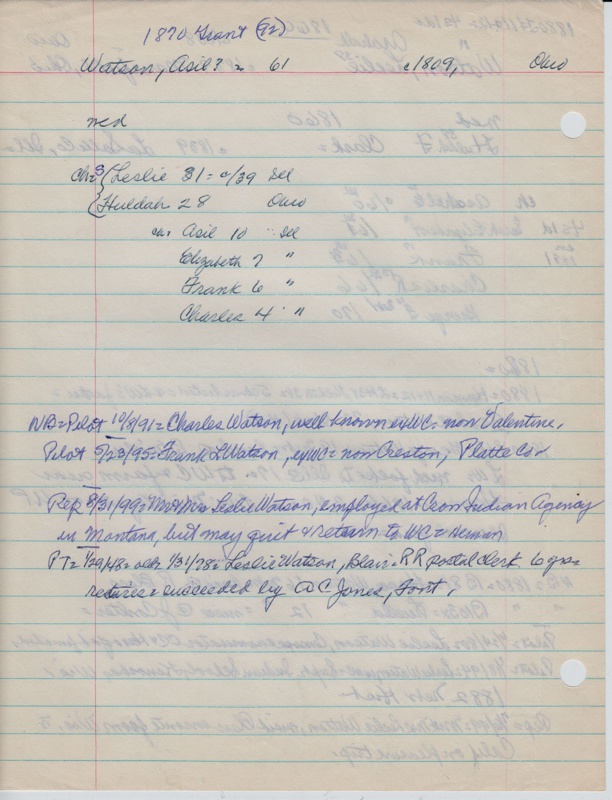 1870 Grant (92)
Watson, Asil? = 61 c1809, Ohio
med
Ch= 3 Leslie 31 = c/39 Ill
Huldah 28 Ohio
ch= Asil 10 Ill
Elizabeth 7 "
Frank 6 "
Charles 4 "
NB= Pilot 10/8/91= Charles Watson, well known exWC= now Valentine,
Pilot 5/23/95= Frank L Watson, exWC= now Creston, Platte Co
Rep 8/31/99= Mr & Mrs Leslie Watson, employed at Crow Indian Agency
in Montana, but may quit & return to WC= Herman
PT= 1/29/48= 1/31/78= Leslie Watson, Blair= RR postal clerk 6 yrs=
retires= succeeded by A C Jones, Font,